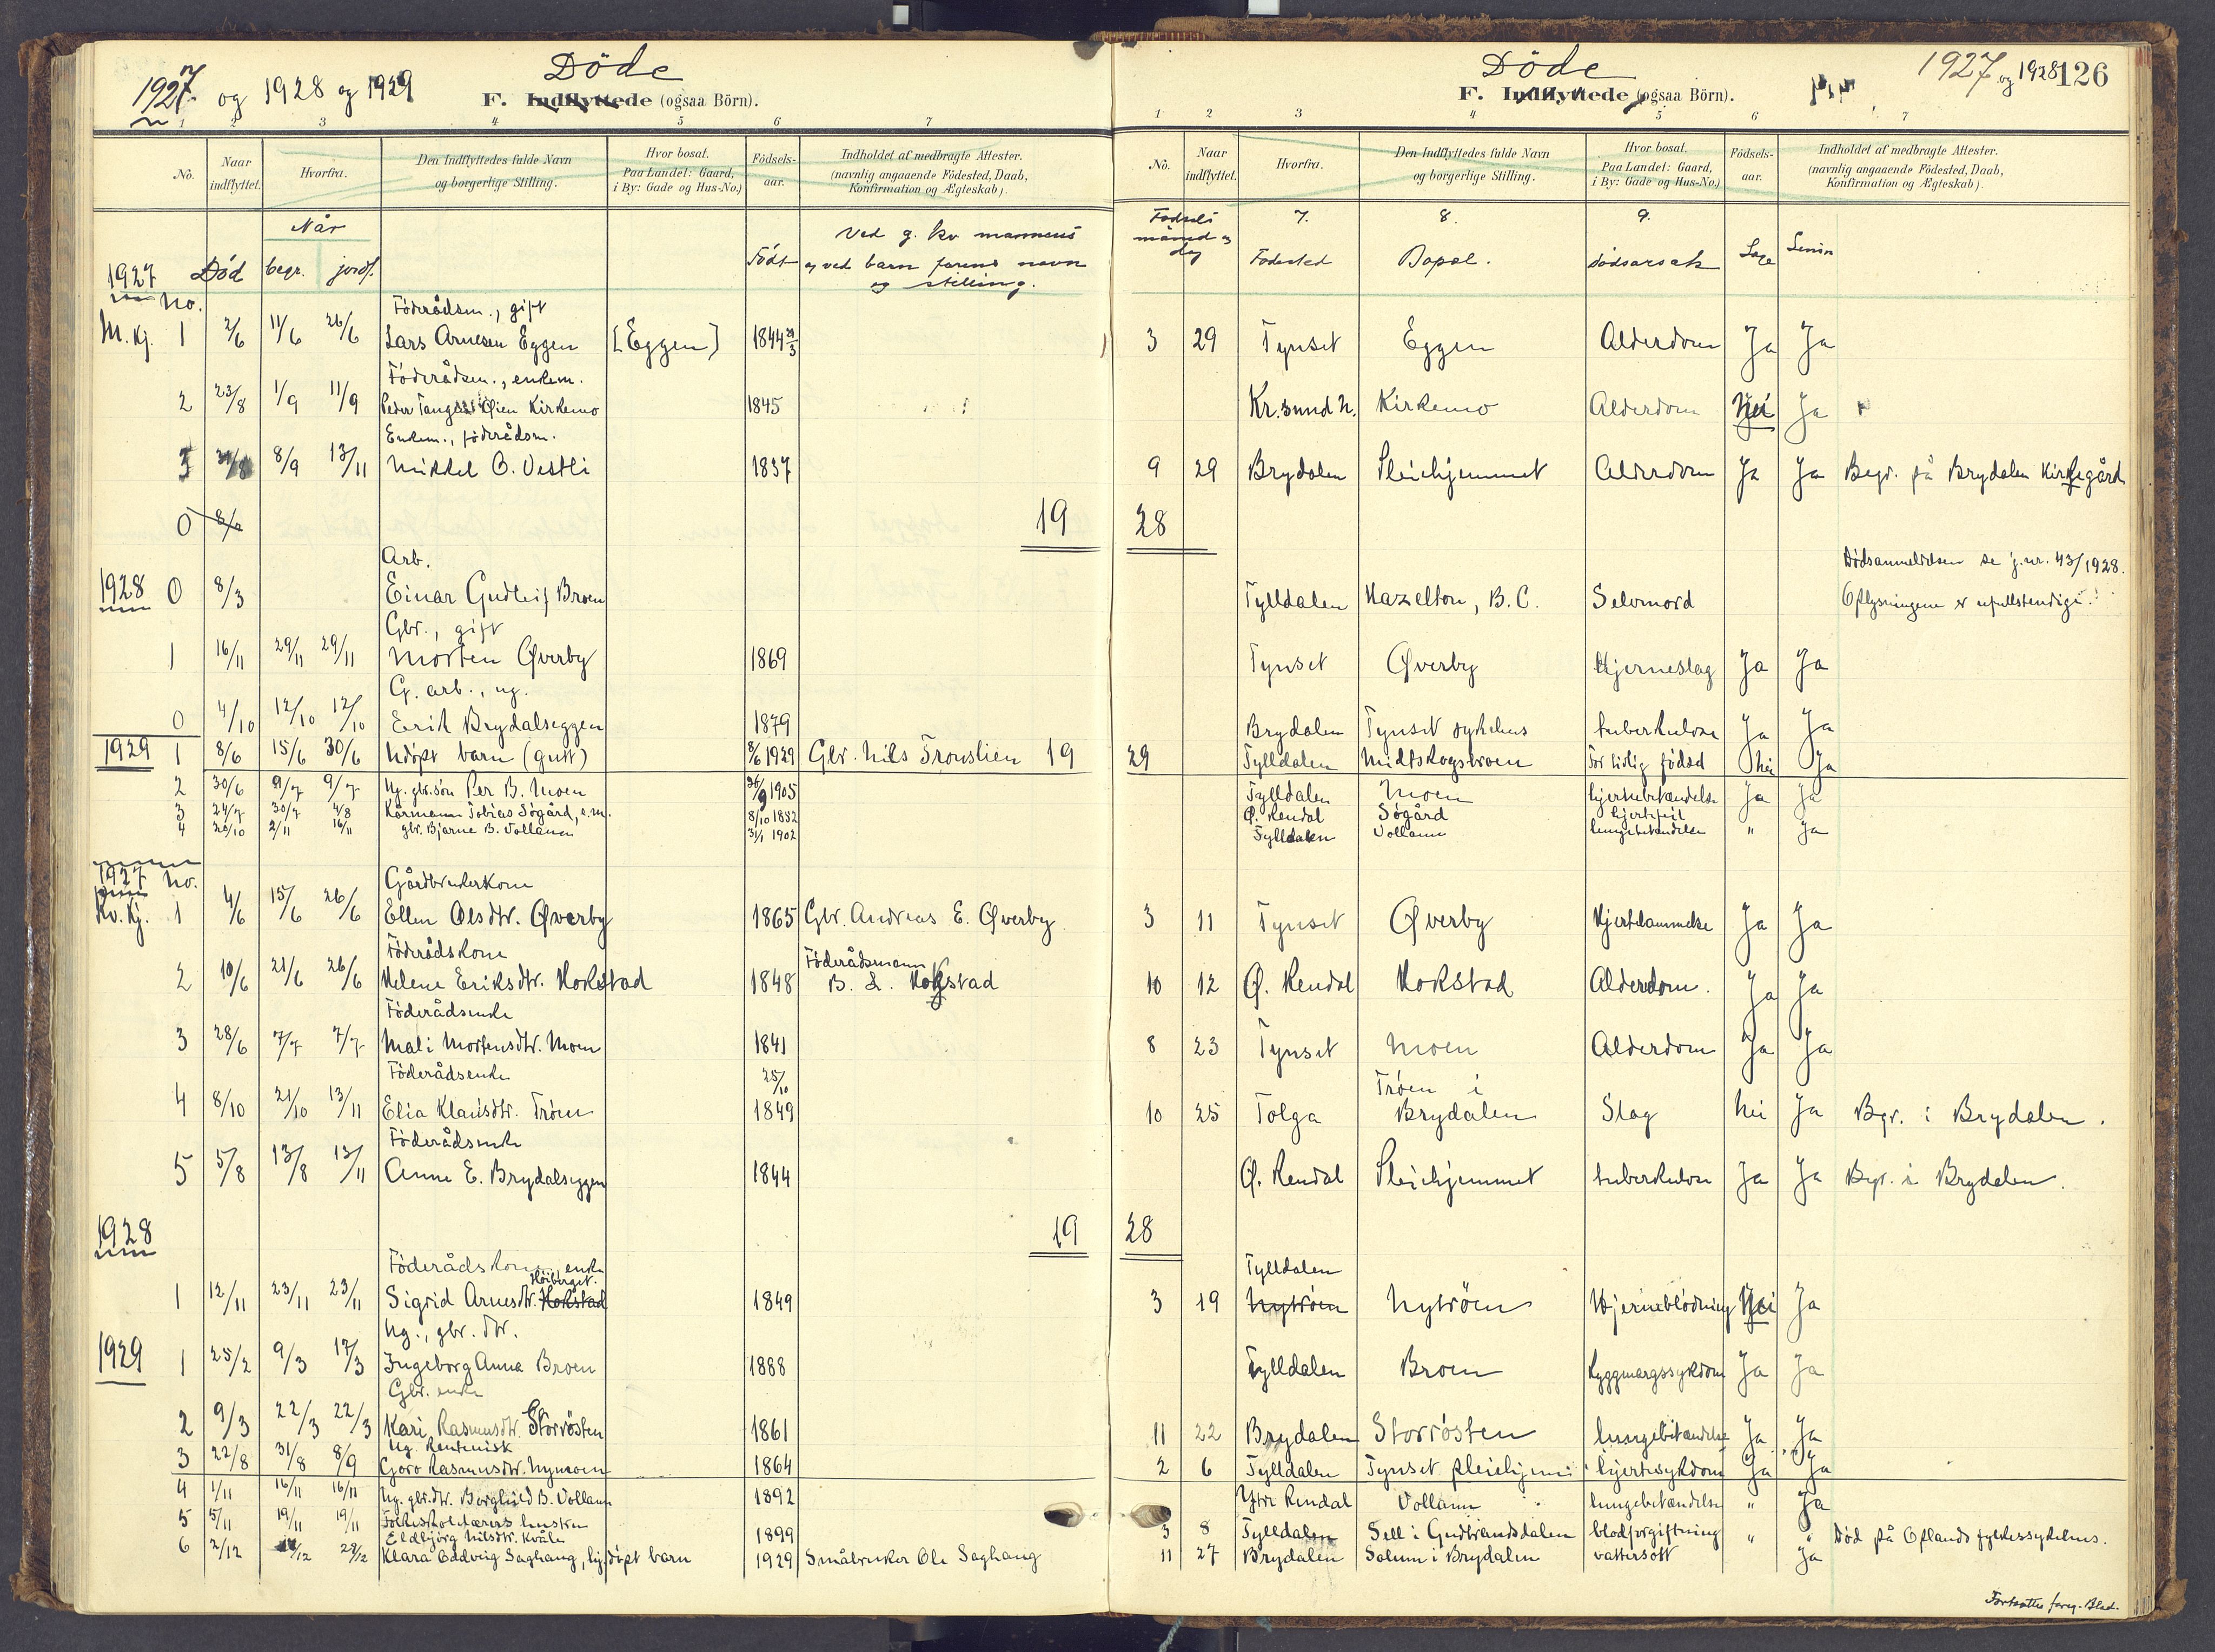 1927 og 1928 og 1929
Döde
F. Indflyttede (ogsaa Börn).
1 2 3 4 5 6 7
No. Naar indflyttet. Hvorfra. Den Indflyttedes fulde Navn og borgerlige Stilling. Hvor bosat. Paa Landet: Gaard, i By: Gade og Hus-No.) Födsels-aar. Indholdet af medbragte Attester. (navnlig angaaende Födested, Daab, Konfirmation og Ægteskab).
Når
1927 Död begr. jordf. Född Ved g. kv mannens
og ved barn farens navn
og stilling.
No.
Föderådsm., gift
M. kj. 1 2/6 11/6 26/6 Lars Arnesen Eggen [Eggen] 1844 29/3
Föderådsm., enkem.
2 23/8 1/9 11/9 Peder Øien Kirkemo 1845
Enkem., föderådsm.
3 31/8 8/9 13/11 Mikkel O. Vestli 1837
0 8/2 19
Arb.
1928 0 8/3 Einar Gudleif Broen
Gbr., gift
1 16/11 29/11 29/11 Morten Øverby 1869
G. arb., ug.
0 4/10 12/10 12/10 Erik Brydalseggen 1879
1929 1 8/6 15/6 30/6 Udöpt barn (gutt) 8/6 1929 Gbr. Nils Trouslien 19
2 30/6 9/7 9/7 Ug. gbr.sön Per B. Moen 30/9 1905
3 24/7 30/7 4/8 Kårmann Tobias Søgård, e.m. 8/10 1852
4 20/10 2/11 16/11 gbr. Bjarne B. Vollann 31/1 1902
1927 No.
Gårdbrukerkone
Kv. kj. 1 4/6 15/6 26/6 Ellen Olsdtr. Øverby 1865 Gbr. Andreas E. Øverby
Föderådskone Föderådsmann
2 10/6 21/6 26/6 Helene Eriksdtr. Hokstad 1848 B. L. Hokstad
Föderådsenke
3 28/6 7/7 7/7 Mali Mortensdtr. Moen 1841
Föderådsenke 25/10
4 8/10 21/10 13/11 Elia Klausdtr. Tröen 1849
Föderådsenke
5 5/8 13/8 13/11 Anne E. Brydalseggen 1844
1928 19
Föderådskone, enke
Höiberget.
1 12/11 23/11 23/11 Sigrid Arnesdtr. Hokstad 1849
Ug., gbr. dtr.
1929 1 25/2 9/3 17/3 Ingeborg Anna Broen 1888
Gbr. enke
2 9/3 22/3 22/3 Kari Rasmusdtr. Storrösten 1861
Ug. Rentenisk
3 22/8 31/8 8/9 Goro Rasmusdtr. Nymoen 1864
4 1/11 16/11 16/11 Ug. gbr.dtr. Borghild B. Vollann 1892
5 5/11 19/11 19/11 Folkeskolelærers hustru
Eldbjörg Nilsdtr. Kvåle 1899
6 2/12 29/12 Klara Oddveig Saghaug, hj.döpt barn 1929 Småbruker Ole Saghaug
Döde
1927 og 1928 126
F. Indflyttede (ogsaa Börn).
1 2 3 4 5 6 7
No. Naar indflyttet. Hvorfra. Den Indflyttedes fulde Navn og borgerlige Stilling. Hvor bosat. Paa Landet: Gaard, i By: Gade og Hus-No.) Födsels-aar. Indholdet af medbragte Attester. (navnlig angaaende Födested, Daab, Konfirmation og Ægteskab).
Födsels måned og dag 7. Födested 8. Bopel. 9. dödsarsak
3 29 Tynset Eggen Alderdom Ja Ja
Kr.sund N. Kirkemo Alderdom Nei Ja
9 29 Brydalen Pleiehjemmet Alderdom Ja Ja Begr. på Brydalen Kirkegård
28
Dödsanmeldelsen se j.nr. 43/1928.
Tylldalen Hazelton, B.C. Selvmord Oplysningene er ufullstendige.
Tynset Øverby Hjerneslag Ja Ja
Brydalen Tynset sykehus tuberkulose Ja Ja
29 Tylldalen Midtskogsbroen For tidlig födsel Nei Ja
Tylldalen Moen hjernebetændelse Ja Ja
Ø. Rendal Søgård hjertefeil
Tylldalen Vollann lungebetændelse " Ja
3 11 Tynset Øverby Hjertelammelse Ja Ja
10 12 Ø. Rendal Hokstad Alderdom. Ja Ja
8 23 Tynset Moen Alderdom Ja Ja
Tröen i
10 25 Tolga Brydalen Slag Nei Ja Bgr. i Brydalen.
Ø. Rendal Pleiehjemmet tuberkulose Ja Ja Bgr. i Brydalen.
28
Tylldalen
3 19 Nytröen Nytröen Hjerneblödning Nei Ja
Tylldalen Broen Ryggmargssykdom Ja Ja
11 22 Brydalen Storrösten lungebetændelse Ja Ja
2 6 Tylldalen Tynset pleiehjem hjertesykdom Ja Ja
Ytre Rendal Vollann lungebetændelse " Ja
3 8 Tylldalen Sell i Gudbrandsdalen blodforgiftning " " Död på Oplands fylkessykehus.
11 27 Brydalen Solum i Brydalen vattersott Ja
Fortsettes foreg. Blad.